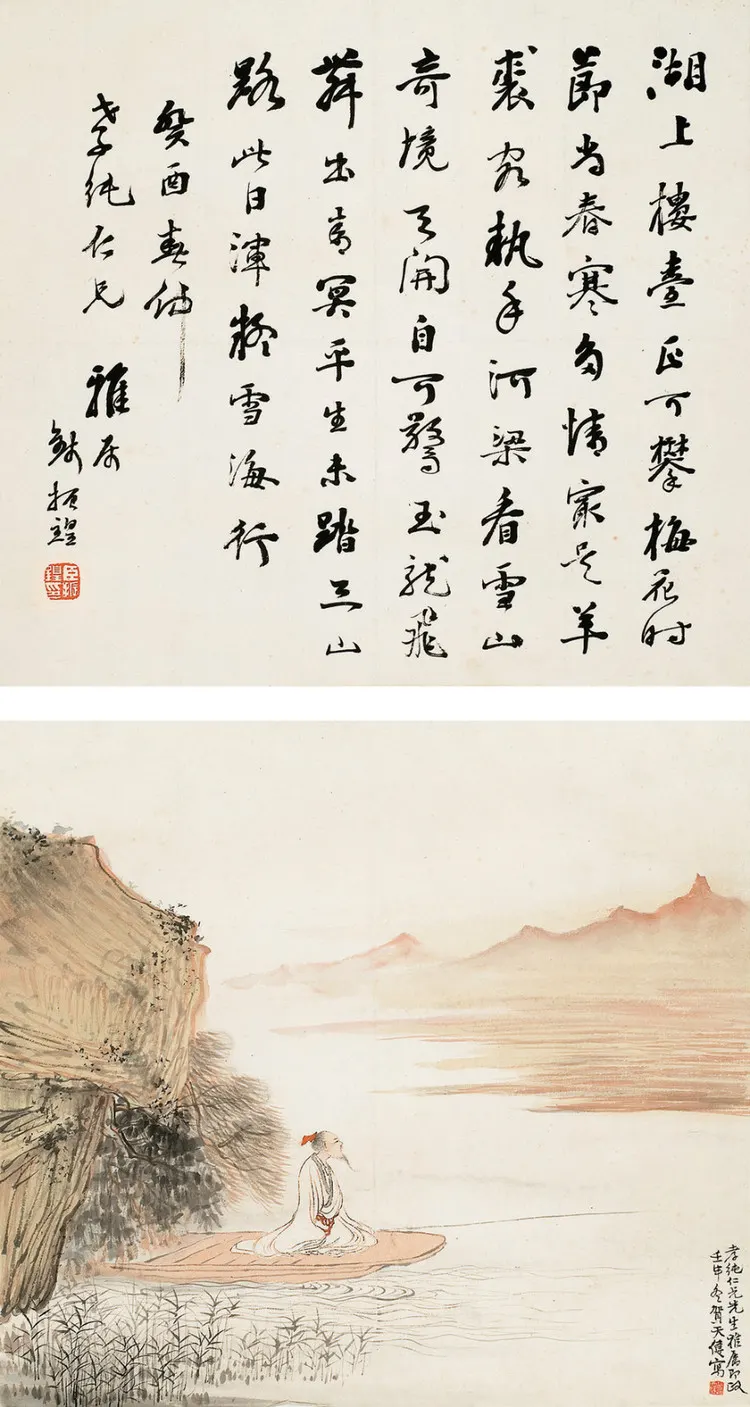 湖上樓臺正可攀梅花時
節尚春寒多情最是羊
裘客執手河梁看雪山
奇境天開自可驚玉龍飛
舞出青冥平生未踏三山
路此日渾疑雪海行
癸酉春仲
孝純仁兄雅屬
錢振鍠
臣振鍠印
孝純仁兄先生雅屬即政
壬申冬賀天健寫